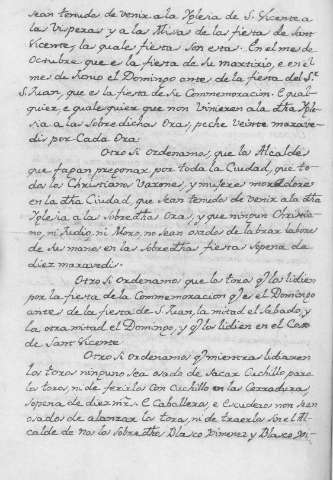 sean tenudos de venir a la Yglesia de S. Vicente a
las Visperas y a la Misa de las fiestas de Sant
Vicente, las quales fiestas son estas. En el mes de
Octubre que es la fiesta de su martirio, e en el
mes de Junio el Domingo antes de la fiesta del Sr.
S. Juan, que es la fiesta de su Commemoracion. E qual-
quier, e qualesquier que non Vinieren a la dha Ygle-
sia a las sobredichas Oras, peche Veinte marave-
dis por Cada Ora.
Otro Si Ordenamos, que los Alcaldes
que fagan pregonar por toda la Ciudad, que to-
dos los Christianos Varones, y mugeres moradores
en la dha Ciudad, que sean tenudos de venir a la dha
Yglesia a las sobredhas Oras, y que ningun Christia-
no, ni Judio, ni Moro, no sean osados de labrar labores
de sus manos en las sobredhas fiestas sopena de
diez maravedis.
Otro Si Ordenamos que los toros q los lidien
por la fiesta de la Commemoracion q es el Domingo
antes de la fiesta de S. Juan, la mitad el Sabado, y
la otra mitad el Domingo, y q los lidien en el Coso
de Sant Vicente
Otro Si Ordenamos q mientras lidiaren
los toros ninguno sea osado de sacar Cuchillo para
los toros, ni de ferirlos con Cuchillo en las Cerraduras,
sopena de diez mrs. E Caballeros, e Escuderos non sean
osados de alanzar los toros, ni de traerlos sin el Al-
calde de nos los sobredhos Blasco Ximenez y Blasco Xi-